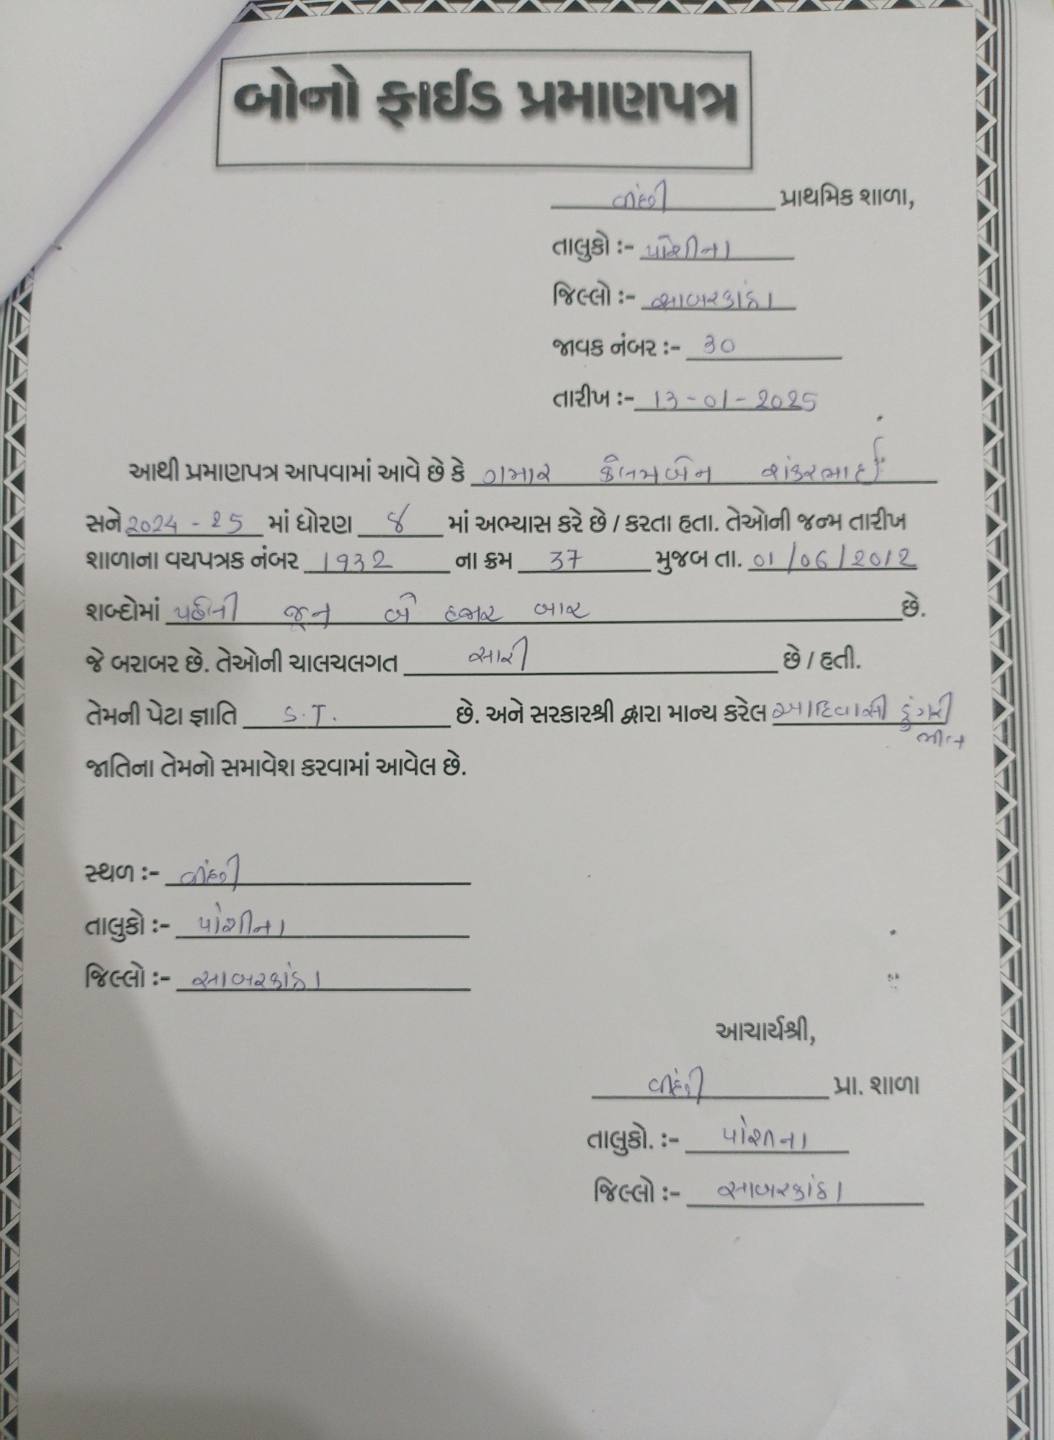 બોનો ફાઈડ પ્રમાણપત્ર
પ્રાથમિક શાળા,
તાલુકો :- પોશીના
જિલ્લો :- સાબરકાંઠા
જાવક નંબર :- 30
તારીખ :- 13-01-2025
આથી પ્રમાણપત્ર આપવામાં આવે છે કે ગમાર શંકરભાઈ
સને 2024-25 માં ધોરણ માં અભ્યાસ કરે છે / કરતા હતા. તેઓની જન્મ તારીખ
શાળાના વયપત્રક નંબર 1932 ના ક્રમ 37 મુજબ તા. 01/06/2012
શબ્દોમાં પહેલી જૂન બે હજાર બાર છે.
જે બરાબર છે. તેઓની ચાલચલગત સારી છે / હતી.
તેમની પેટા જ્ઞાતિ S.T. છે. અને સરકારશ્રી દ્વારા માન્ય કરેલ આદિવાસી ડુંગરી
ભીલ
જાતિના તેમનો સમાવેશ કરવામાં આવેલ છે.
સ્થળ :-
તાલુકો :- પોશીના
જિલ્લો :- સાબરકાંઠા
આચાર્યશ્રી,
પ્રા. શાળા
તાલુકો. :- પોશીના
જિલ્લો :- સાબરકાંઠા